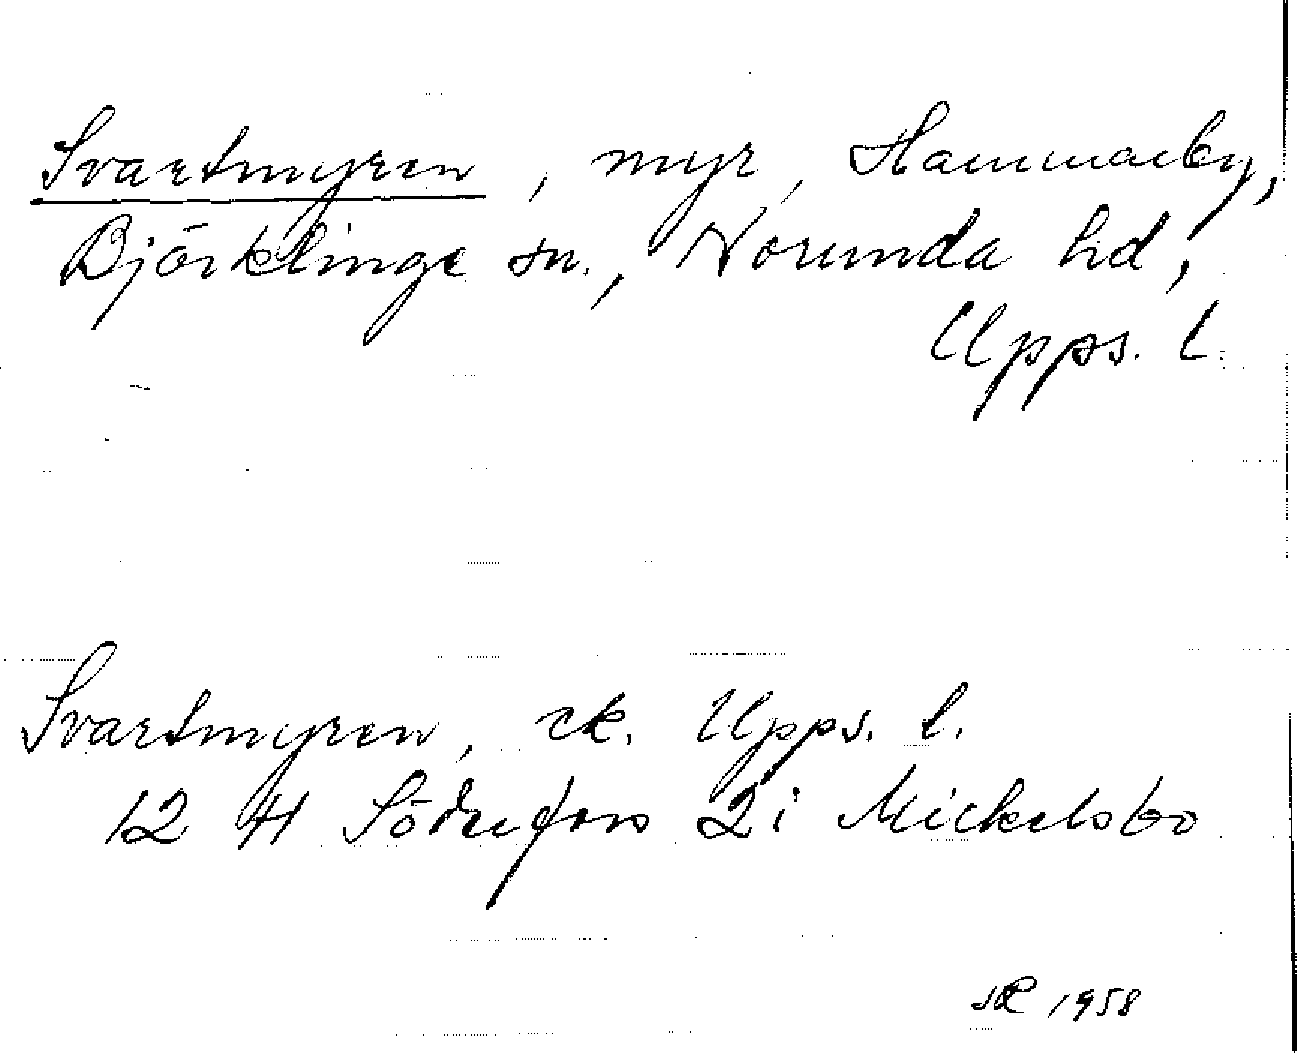 Svartmyren, myr, Hammarby,
Björklinge sn., Norunda hd,
Upps. l.
Svartmyren, ek. Upps. l.
12 H Söderfors 2i Mickelsbo
1958